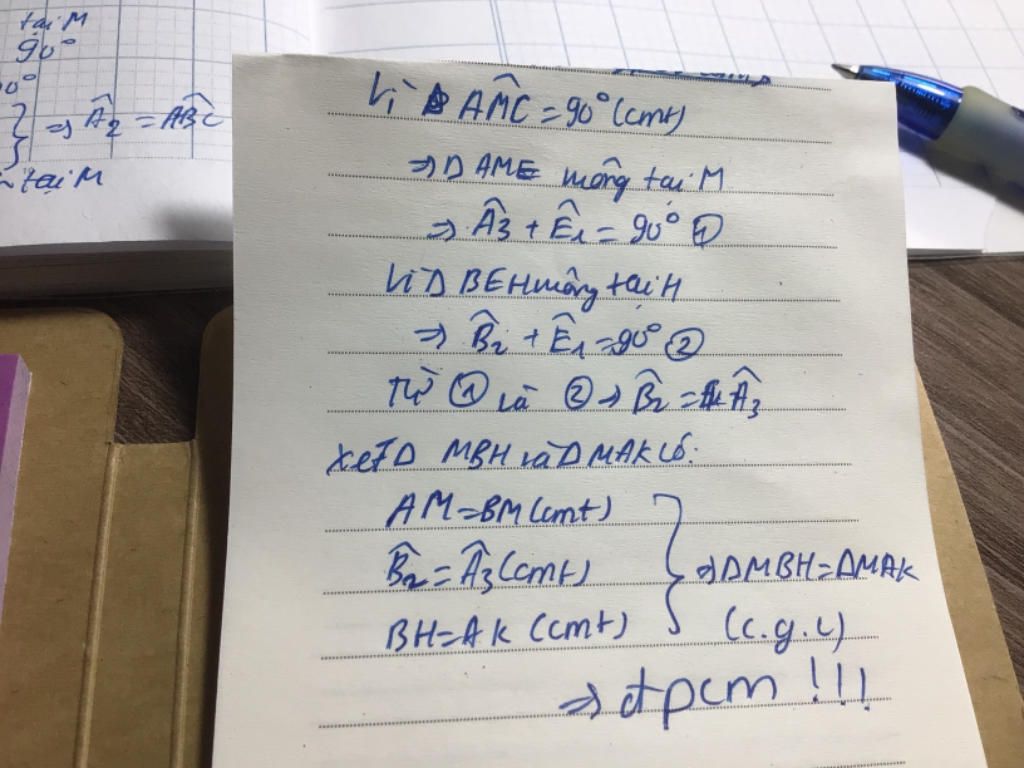 tại M
90°
0°
} ⇒ Â₂ = AB̂C
tại M
Vì AM̂C = 90° (cmt)
⇒ Δ AME vuông tại M
⇒ Â₃ + Ê₁ = 90° ①
Vì Δ BEH vuông tại H
⇒ B̂₂ + Ê₁ = 90° ②
Từ ① và ② ⇒ B̂₂ = Â₃
Xét Δ MBH và Δ MAK có:
AM = BM (cmt)
B̂₂ = Â₃ (cmt) } ⇒ Δ MBH = Δ MAK
BH = AK (cmt) (c.g.c)
⇒ đpcm !!!